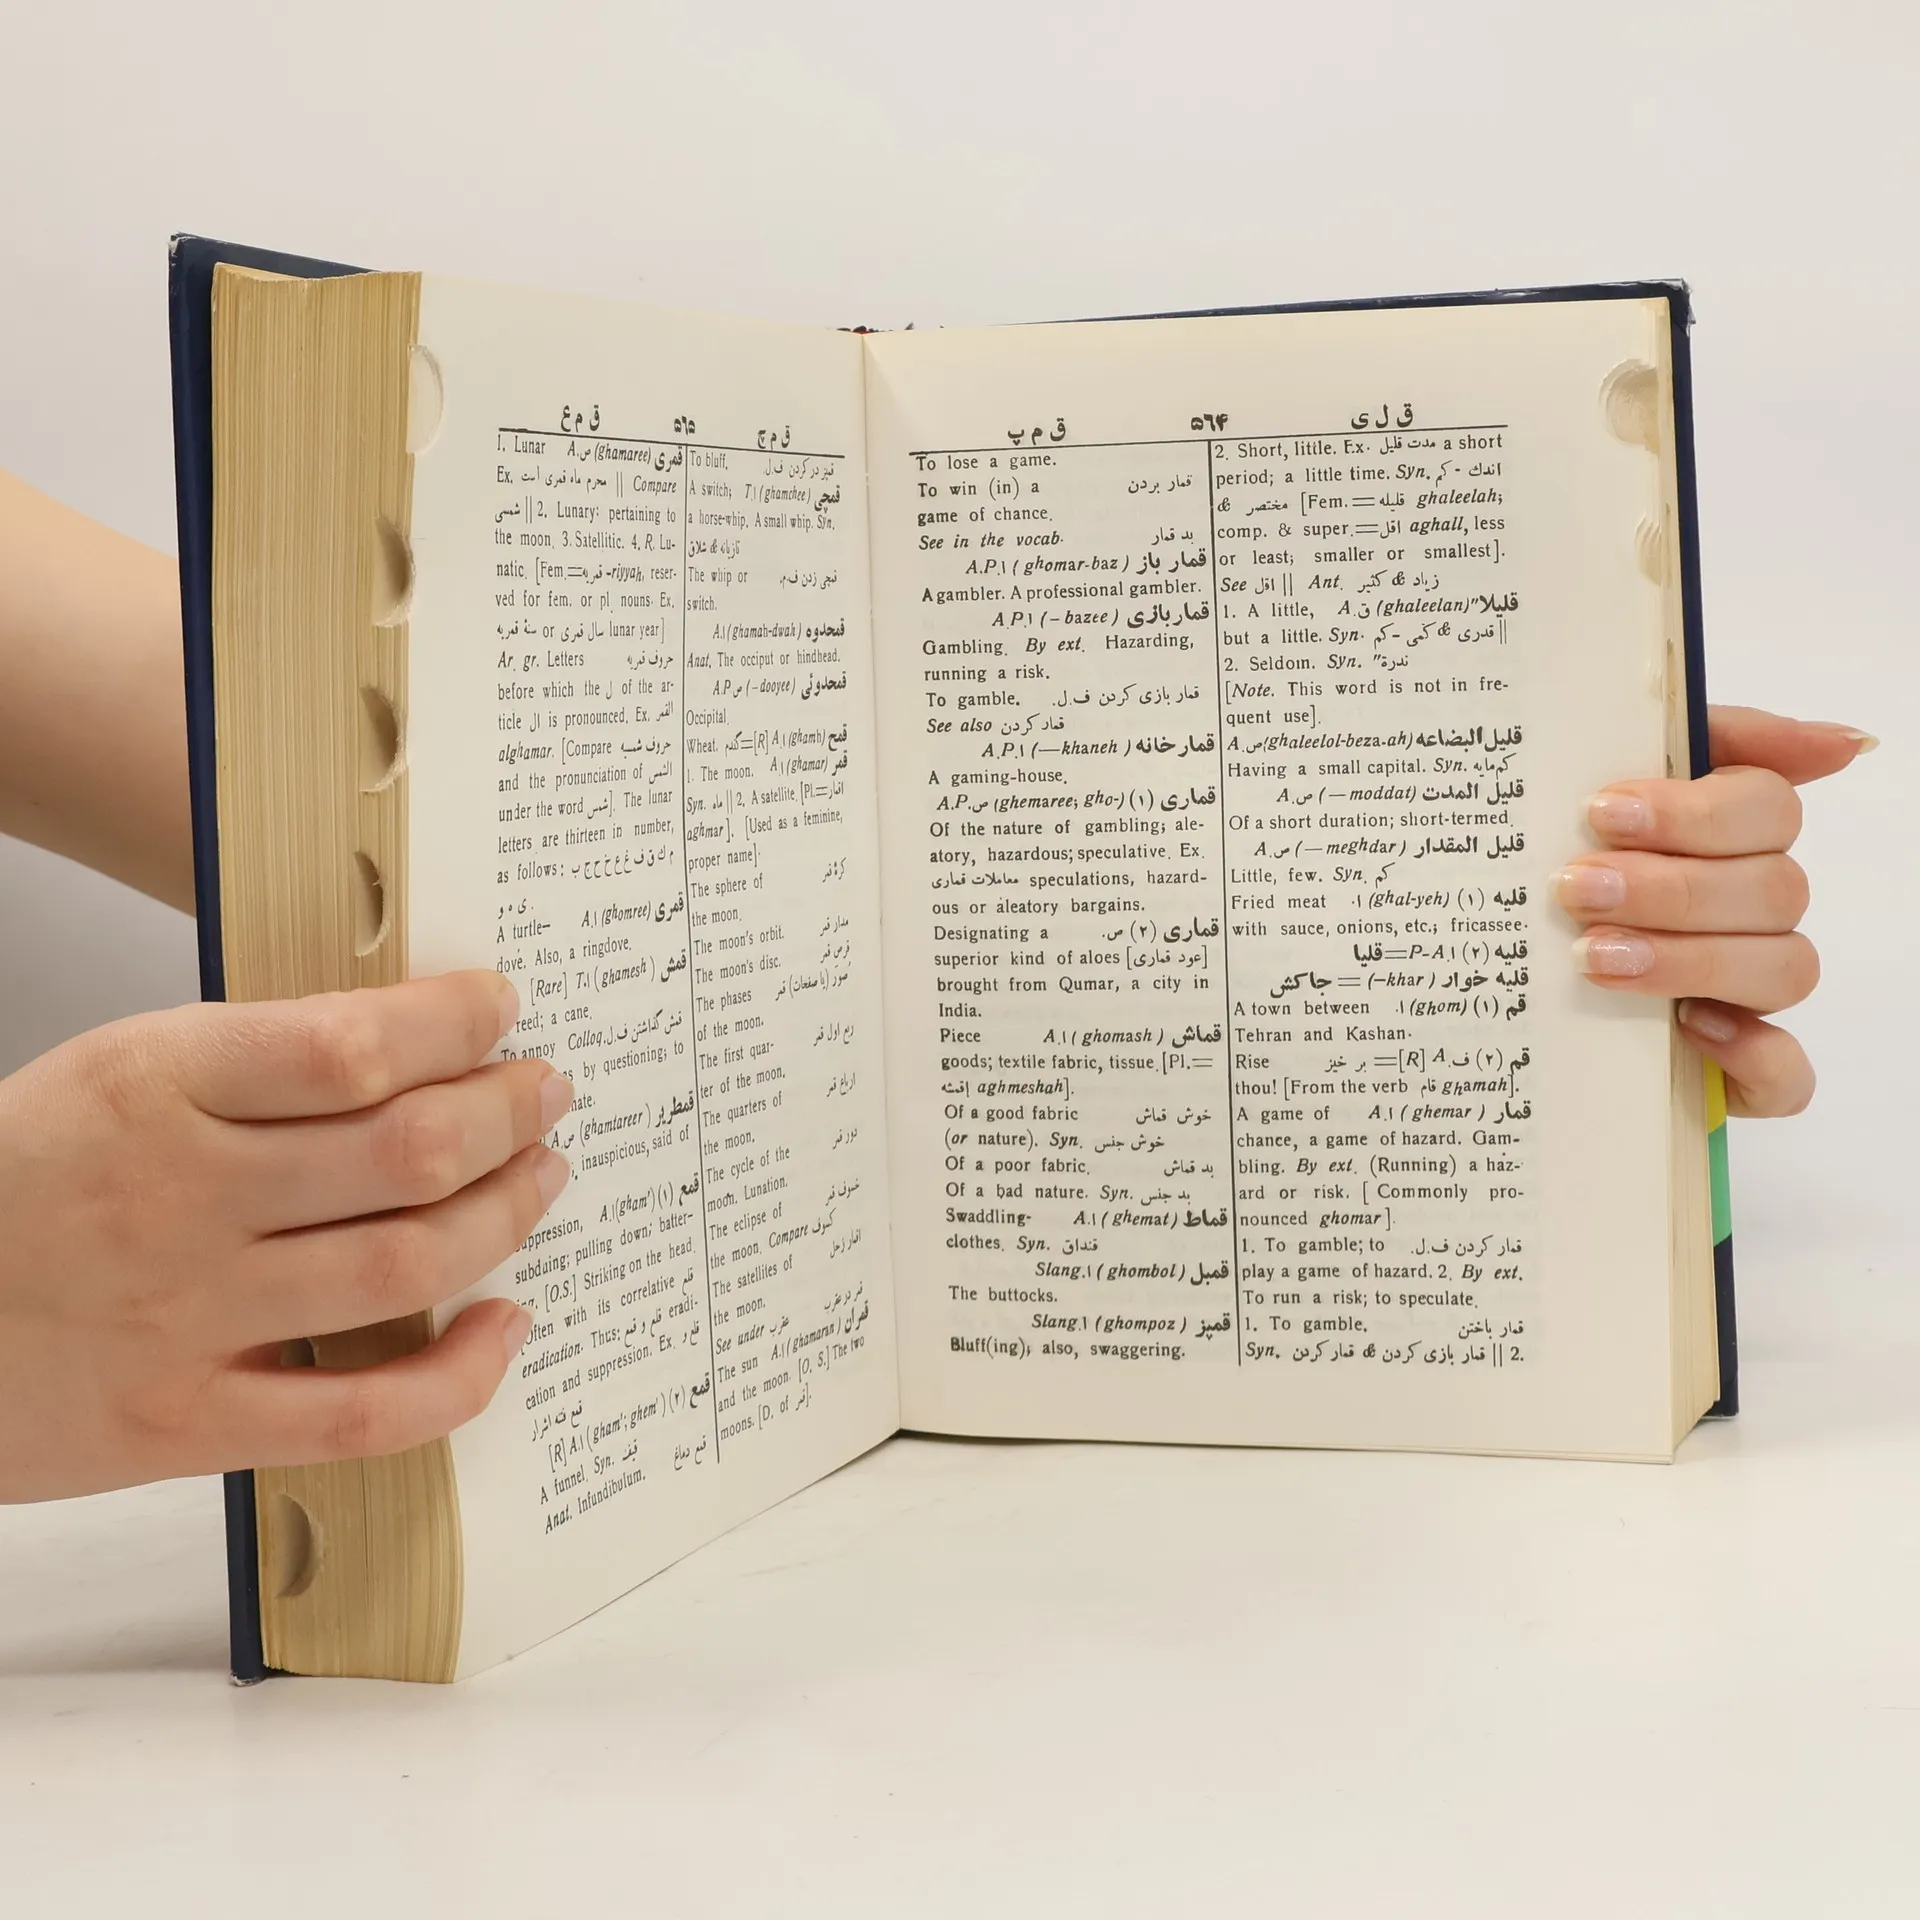 ق ل ی
۵۶۴
ق م پ
2. Short, little. Ex. مدت قلیل a short
period; a little time. Syn. اندك - کم
& مختصر [Fem.=قلیله ghaleelah;
comp. & super.=اقل aghall, less
or least; smaller or smallest].
See اقل || Ant. زیاد & کثیر
قلیلا" (ghaleelan) A.ق 1. A little,
but a little. Syn. قدری & کمی - کم ||
2. Seldom. Syn. ندرة"
[Note. This word is not in fre-
quent use].
قلیل البضاعه (ghaleelol-beza-ah) A.ص
Having a small capital. Syn. کم مایه
قلیل المدت (—moddat) A.ص
Of a short duration; short-termed.
قلیل المقدار (—meghdar) A.ص
Little, few. Syn. کم
قلیه (۱) (ghal-yeh) ا. Fried meat
with sauce, onions, etc.; fricassee.
قلیه (۲) P-A.ا=قلیا
قلیه خوار (-khar) = جاکش
قم (۱) (ghom) ا. A town between
Tehran and Kashan.
قم (۲) ف.A [R]= بر خیز Rise
thou! [From the verb قام ghamah].
قمار (ghemar) A.ا A game of
chance, a game of hazard. Gam-
bling. By ext. (Running) a haz-
ard or risk. [Commonly pro-
nounced ghomar].
قمار کردن ف.ل. 1. To gamble; to
play a game of hazard. 2. By ext.
To run a risk; to speculate.
قمار باختن 1. To gamble.
Syn. قمار بازی کردن & قمار کردن || 2.
To lose a game.
قمار بردن To win (in) a
game of chance.
بد قمار See in the vocab.
قمار باز (ghomar-baz) A.P.ا
A gambler. A professional gambler.
قمار بازی (-bazee) A.P.ا
Gambling. By ext. Hazarding,
running a risk.
قمار بازی کردن ف.ل. To gamble.
See also قمار کردن
قمار خانه (—khaneh) A.P.ا
A gaming-house.
قماری (۱) (ghemaree; gho-) A.P.ص
Of the nature of gambling; ale-
atory, hazardous; speculative. Ex.
معاملات قماری speculations, hazard-
ous or aleatory bargains.
قماری (۲) ص. Designating a
superior kind of aloes [عود قماری]
brought from Qumar, a city in
India.
قماش (ghomash) A.ا Piece
goods; textile fabric, tissue. [Pl.=
اقمشه aghmeshah].
خوش قماش Of a good fabric
(or nature). Syn. خوش جنس
بد قماش Of a poor fabric.
Of a bad nature. Syn. بد جنس
قماط (ghemat) A.ا Swaddling-
clothes. Syn. قنداق
قمبل (ghombol) Slang.ا
The buttocks.
قمپز (ghompoz) Slang.ا
Bluff(ing); also, swaggering.
ق م چ
۵۶۵
ق م ع
قمپز در کردن ف.ل. To bluff.
قمچی (ghamchee) T.ا A switch;
a horse-whip. A small whip. Syn.
تازیانه & شلاق
قمچی زدن ف.م. The whip or
switch.
قمحدوه (ghamah-dwah) A.ا
Anat. The occiput or hindhead.
قمحدوئی (-dooyee) A.P ص
Occipital.
قمح (ghamh) A.ا [R]=گندم Wheat.
قمر (ghamar) A.ا 1. The moon.
Syn. ماه || 2. A satellite. [Pl.=اقمار
aghmar]. [Used as a feminine,
proper name].
کرۀ قمر The sphere of
the moon.
مدار قمر The moon's orbit.
قرص قمر The moon's disc.
صور (یا صفحات) قمر The phases
of the moon.
ربع اول قمر The first quar-
ter of the moon.
ارباع قمر The quarters of
the moon.
دور قمر The cycle of the
moon. Lunation.
خسوف قمر The eclipse of
the moon. Compare کسوف
اقمار زحل The satellites of
the moon.
قمر در عقرب
See under عقرب
قمران (ghamaran) A.ا The sun
and the moon. [O. S.] The two
moons. [D. of قمر].
قمری (ghamaree) A.ص 1. Lunar
Ex. محرم ماه قمری است || Compare
شمسی || 2. Lunary: pertaining to
the moon. 3. Satellitic. 4. R. Lu-
natic. [Fem.=قمریه -riyyah, reser-
ved for fem. or pl. nouns. Ex.
سنۀ قمریه or سال قمری lunar year]
حروف قمریه Ar. gr. Letters
before which the ل of the ar-
ticle ال is pronounced. Ex. القمر
alghamar. [Compare حروف شمسیه
and the pronunciation of الشمس
under the word شمس]. The lunar
letters are thirteen in number,
as follows: ب ج ح خ ع غ ف ق ك م
و ه ی.
قمری (ghomree) A.ا A turtle-
dove. Also, a ringdove.
قمش (ghamesh) T.ا [Rare]
reed; a cane.
قمش گذاشتن ف.ل. Colloq. To annoy
by questioning; to
قمطریر (ghamtareer) A.ص
inauspicious, said of
قمع (۱) (gham') A.ا
subduing; pulling down; batter-
[O.S.] Striking on the head.
[Often with its correlative قلع
eradication. Thus: قلع و قمع eradi-
cation and suppression. Ex. قلع و
قمع فتنه اشرار
قمع (۲) (gham'; ghem') A.ا [R]
A funnel. Syn. قیف
قمع دماغ Anat. Infundibulum.